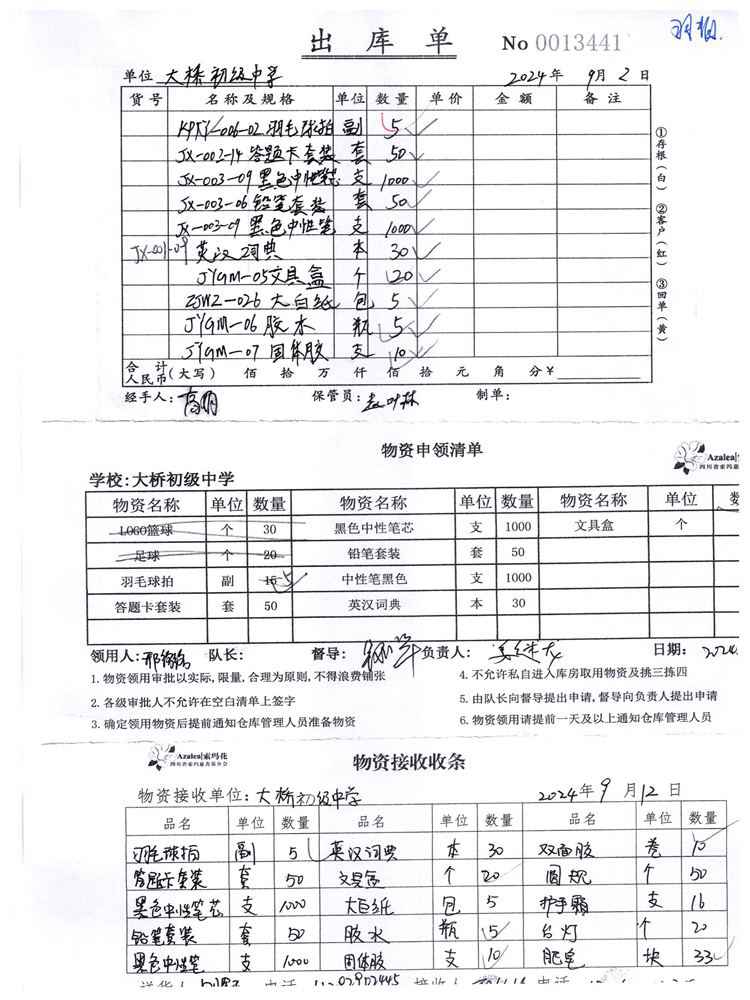 出库单 No 0013441
单位 大桥初级中学 2024年 9月2日
货号 名称及规格 单位 数量 单价 金额 备注
KPTY-006-02 羽毛球拍 副 5
JX-002-14 答题卡套装 套 50
JX-003-09 黑色中性笔芯 支 1000
JX-003-06 铅笔套装 套 50
JX-003-09 黑色中性笔 支 1000
JX-001-09 英汉词典 本 30
JYGM-05 文具盒 个 20
ZJWZ-026 大白纸 包 5
JYGM-06 胶水 瓶 5
JYGM-07 固体胶 支 10
合计
人民币(大写) 佰 拾 万 仟 佰 拾 元 角 分 ¥
经手人: 保管员: 制单:
①存根(白) ②客户(红) ③回单(黄)
物资申领清单
Azalea
学校:大桥初级中学
物资名称 单位 数量 物资名称 单位 数量 物资名称 单位
LOGO篮球 个 30 黑色中性笔芯 支 1000 文具盒 个
足球 个 20 铅笔套装 套 50
羽毛球拍 副 15 5 中性笔黑色 支 1000
答题卡套装 套 50 英汉词典 本 30
领用人: 队长: 督导: 负责人: 日期: 2024.
1. 物资领用审批以实际,限量,合理为原则,不得浪费铺张
4. 不允许私自进入库房取用物资及挑三拣四
2. 各级审批人不允许在空白清单上签字
5. 由队长向督导提出申请,督导向负责人提出申请
3. 确定领用物资后提前通知仓库管理人员准备物资
6. 物资领用请提前一天及以上通知仓库管理人员
Azalea|索玛花
物资接收收条
物资接收单位: 大桥初级中学 2024年 9月12日
品名 单位 数量 品名 单位 数量 品名 单位 数量
羽毛球拍 副 5 英汉词典 本 30 双面胶 卷 10
答题卡套装 套 50 文具盒 个 20 圆规 个 50
黑色中性笔芯 支 1000 大白纸 包 5 护手霜 支 16
铅笔套装 套 50 胶水 瓶 5 台灯 个 20
黑色中性笔 支 1000 固体胶 支 10 肥皂 块 33